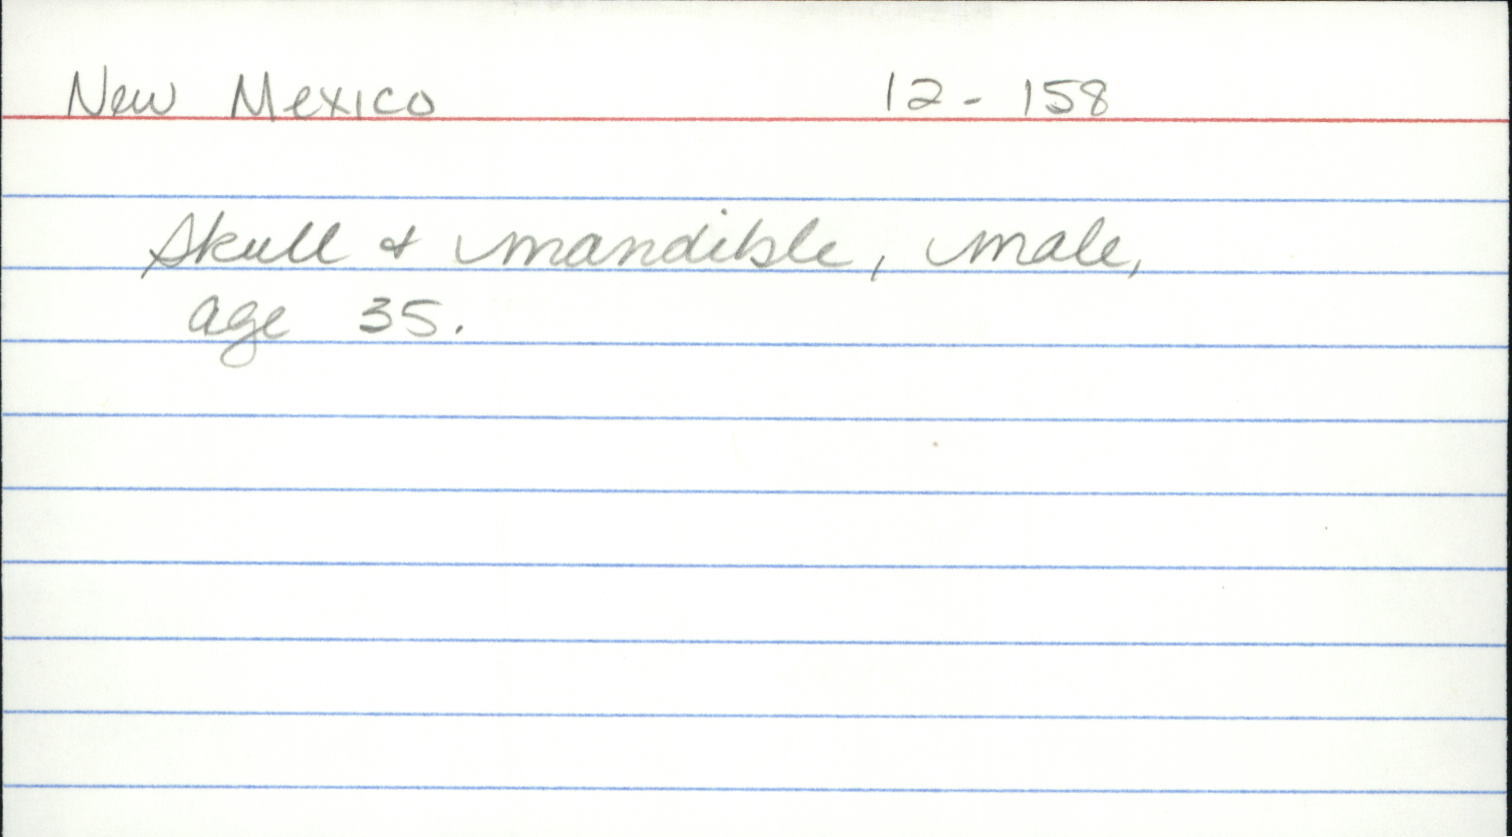 New Mexico 12-158
Skull & mandible, male,
age 35.